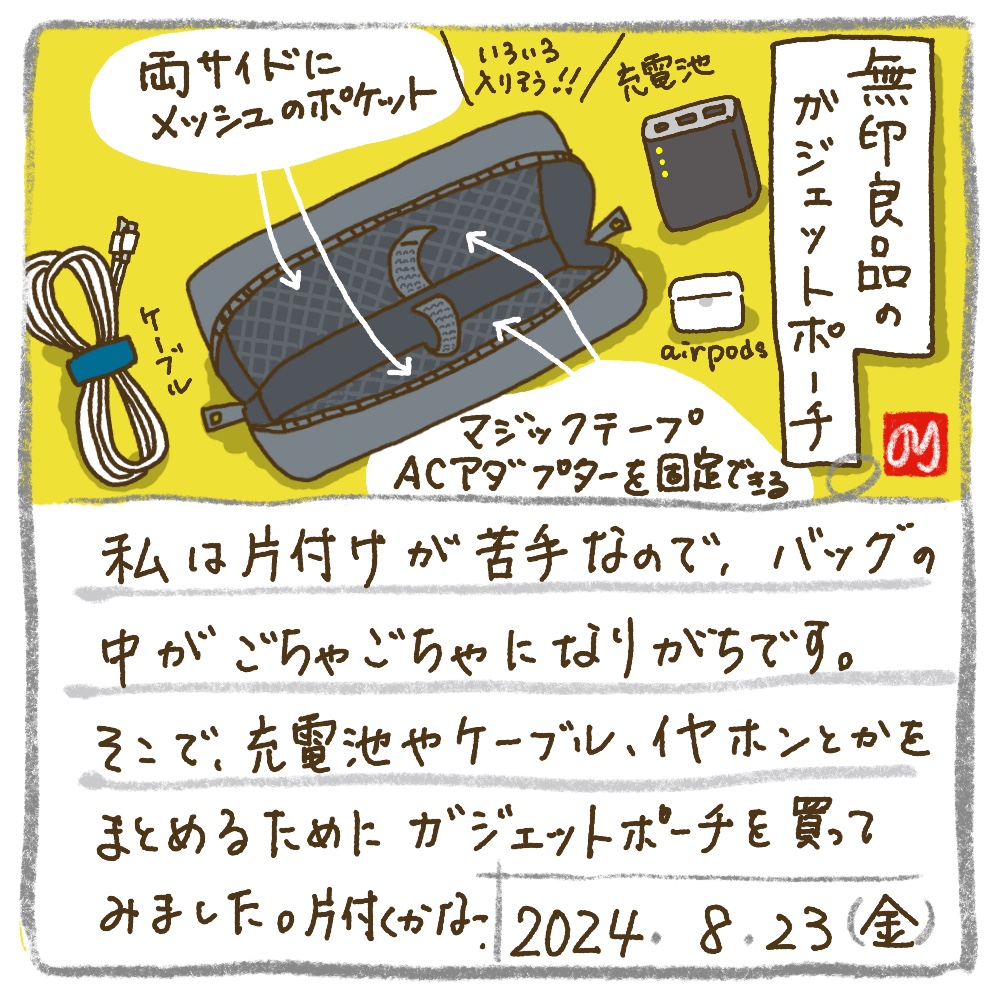 無印良品の
ガジェットポーチ
両サイドに
メッシュのポケット
いろいろ
入りそう!!
充電池
ケーブル
airpods
マジックテープ
ACアダプターを固定できる
私は片付けが苦手なので、バッグの
中がごちゃごちゃになりがちです。
そこで、充電池やケーブル、イヤホンとかを
まとめるためにガジェットポーチを買って
みました。片付くかな?
2024.8.23(金)